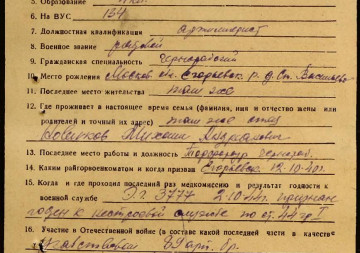 5. Образование
6. На ВУС 134
7. Должностная квалификация артиллерист
8. Военное звание рядовой
9. Гражданская специальность чернорабочий
10. Место рождения Москов. обл. Егорьевск. р. д.
11. Последнее место жительства там же
12. Где проживает в настоящее время семья (фамилия, имя и отчество жены или
родителей и точный их адрес) там же отец
Новиков Михаил
13. Последнее место работы и должность
14. Каким райгорвоенкоматом и когда призван Егорьевск. 12.10.40г.
15. Когда и где проходил последний раз медкомиссию и результат годности к
военной службе ЭГ 3777 2.10.44г. признан
годен к нестроевой службе по ст. 44 гр I
16. Участие в Отечественной войне (в составе какой последней части в качестве